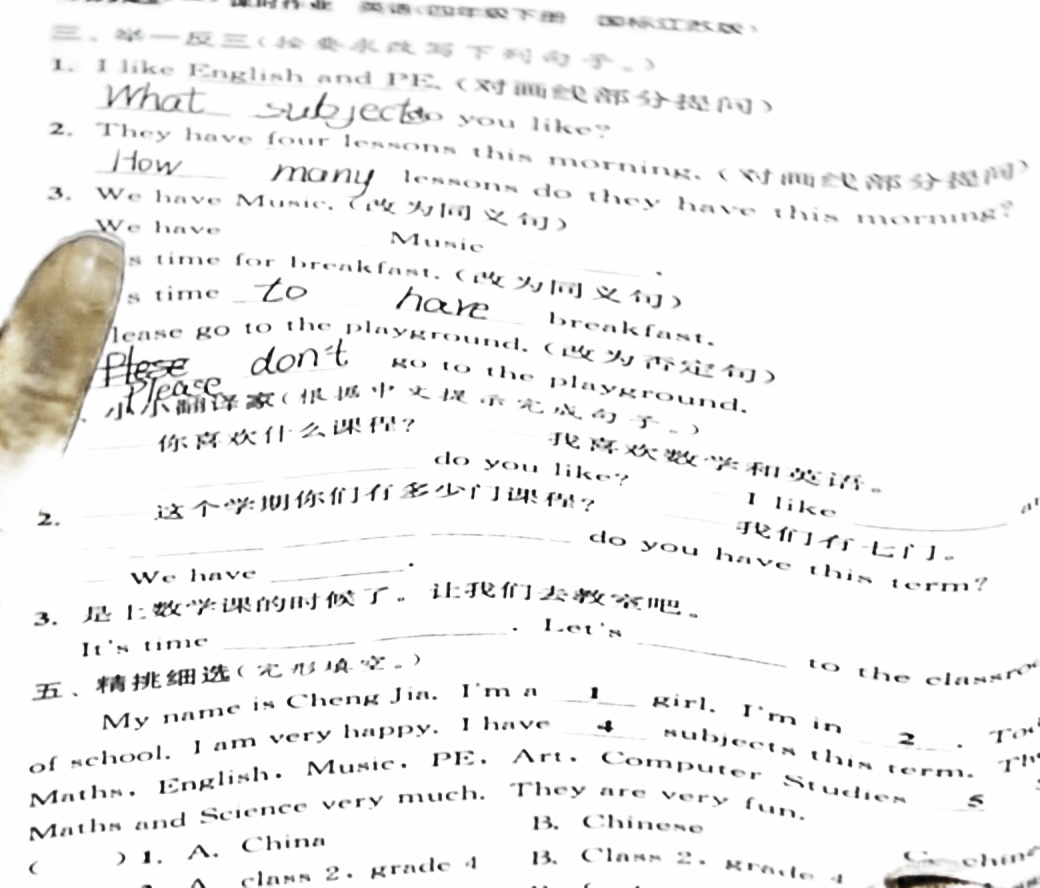 课时作业 英语(四年级下册 国标江苏版)
三、举一反三(按要求改写下列句子。)
1. I like English and PE. (对画线部分提问)
What subjects do you like?
2. They have four lessons this morning. (对画线部分提问)
How many lessons do they have this morning?
3. We have Music. (改为同义句)
We have ______ Music ______.
s time for breakfast. (改为同义句)
s time to have breakfast.
lease go to the playground. (改为否定句)
Plese don't go to the playground.
Please
、小小翻译家(根据中文提示完成句子。)
你喜欢什么课程? 我喜欢数学和英语。
______ ______ do you like? I like ______
2. 这个学期你们有多少门课程? 我们有七门。
______ ______ ______ do you have this term?
We have ______.
3. 是上数学课的时候了。让我们去教室吧。
It's time ______ ______. Let's ______ to the
五、精挑细选(完形填空。)
My name is Cheng Jia. I'm a 1 girl. I'm in 2 .
of school. I am very happy. I have 4 subjects this term.
Maths, English, Music, PE, Art, Computer Studies 5
Maths and Science very much. They are very fun.
( ) 1. A. China B. Chinese C.
A. class 2, grade 4 B. Class 2, grade 4